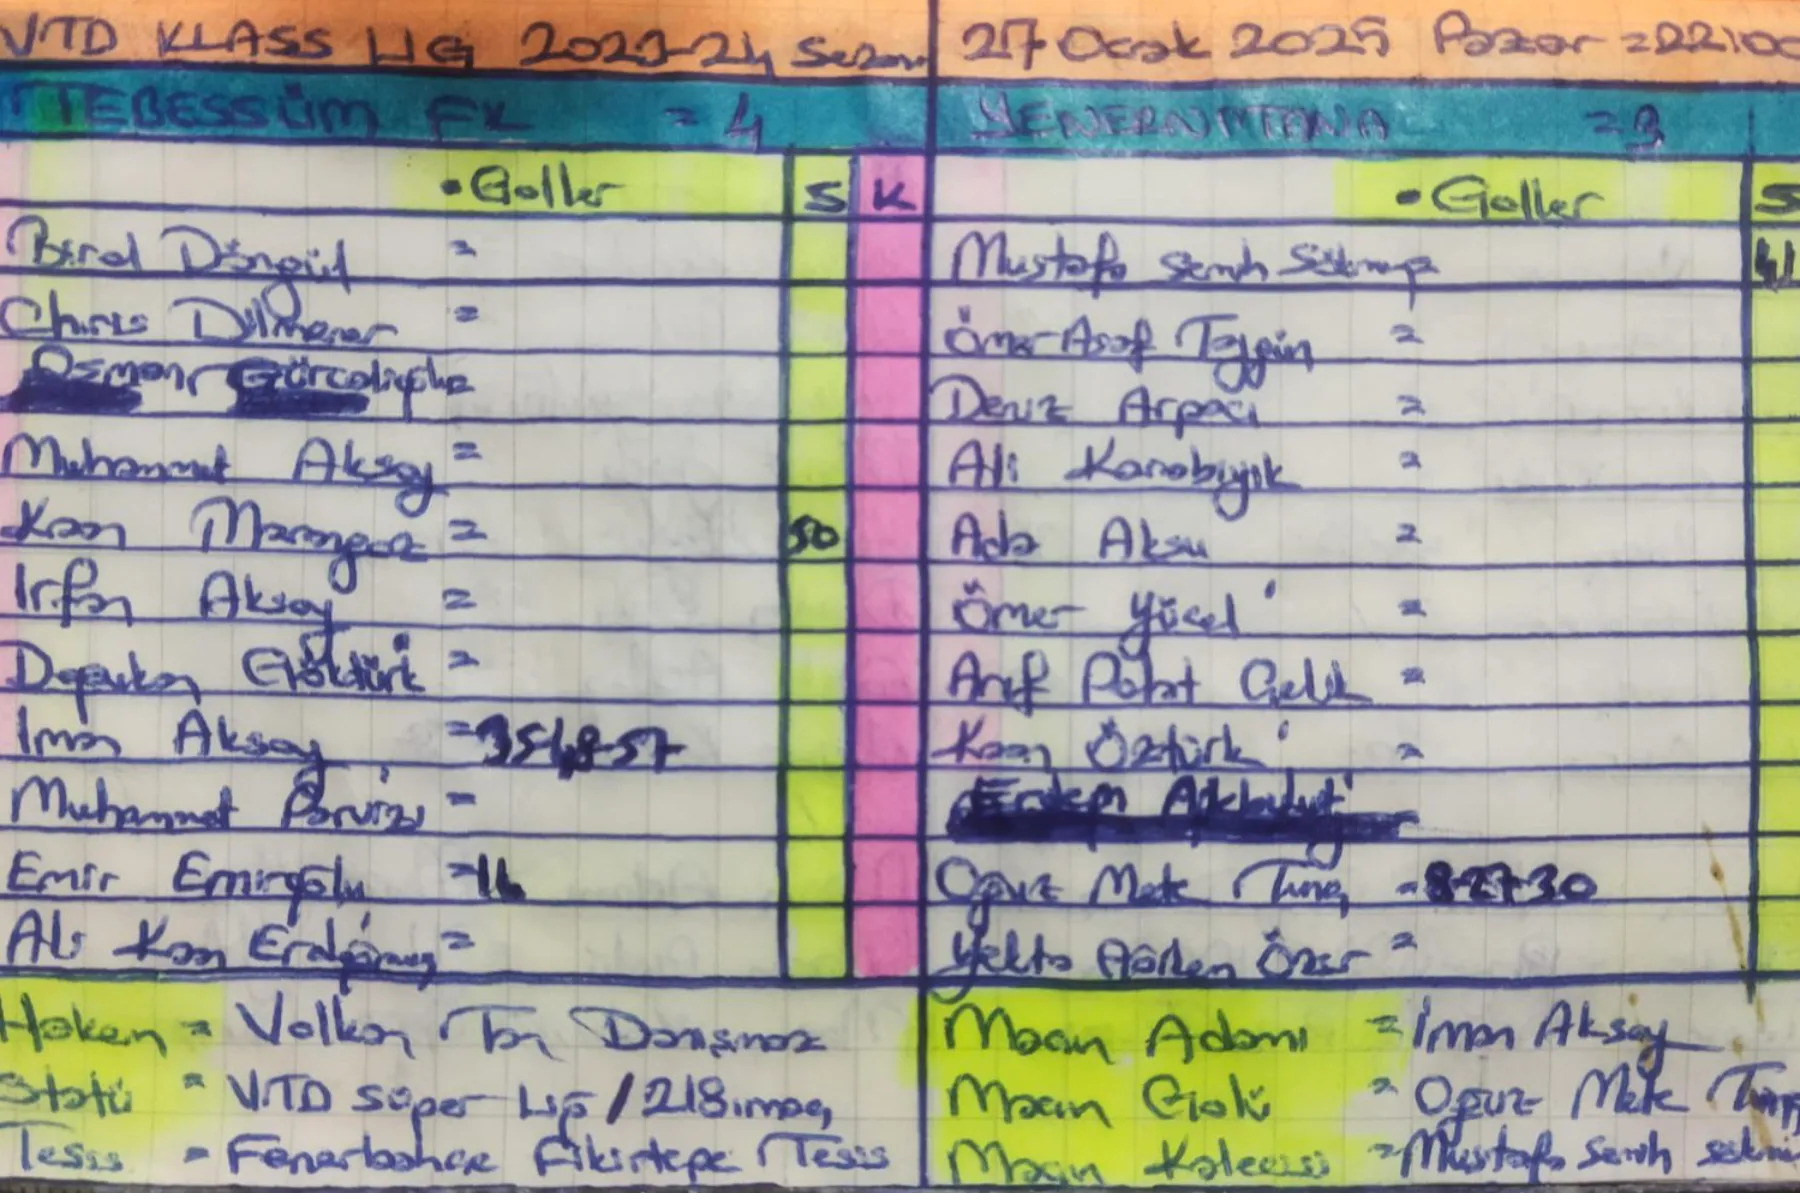 VTD KLASS LIG 2023-24 Sezon
27 Ocak 2025 Pazar = 22:00
TEBESSÜM FK = 4
YENERNMTANA = 3
• Goller S K
• Goller S
Birol Döngül =
Mustafa Semih 41
Chris Dilmener =
Ömer Asaf Taypin =
Osman =
Deniz Arpacı =
Muhammet Aksoy =
Ali Karabıyık =
Kaan Marangoz = 50
Ada Aksu =
Irfan Aksoy =
Ömer Yücel =
Göktürk =
Arif Polat Çelik =
Iman Aksoy = 35-48-57
Kaan Öztürk =
Muhammet Parvizi =
Erdem Akbulut
Emir Emiroğlu = 16
Oguz Mete Tunç = 8-27-30
Ali Kaan =
Yekta Özer =
Hakem = Volkan Tan Danışmaz
Statü = VTD Süper Lig / 218.maç
Tesis = Fenerbahçe Fikirtepe Tesis
Maçın Adamı = İman Aksoy
Maçın Golü = Oguz Mete Tunç
Maçın Kalecisi = Mustafa Semih